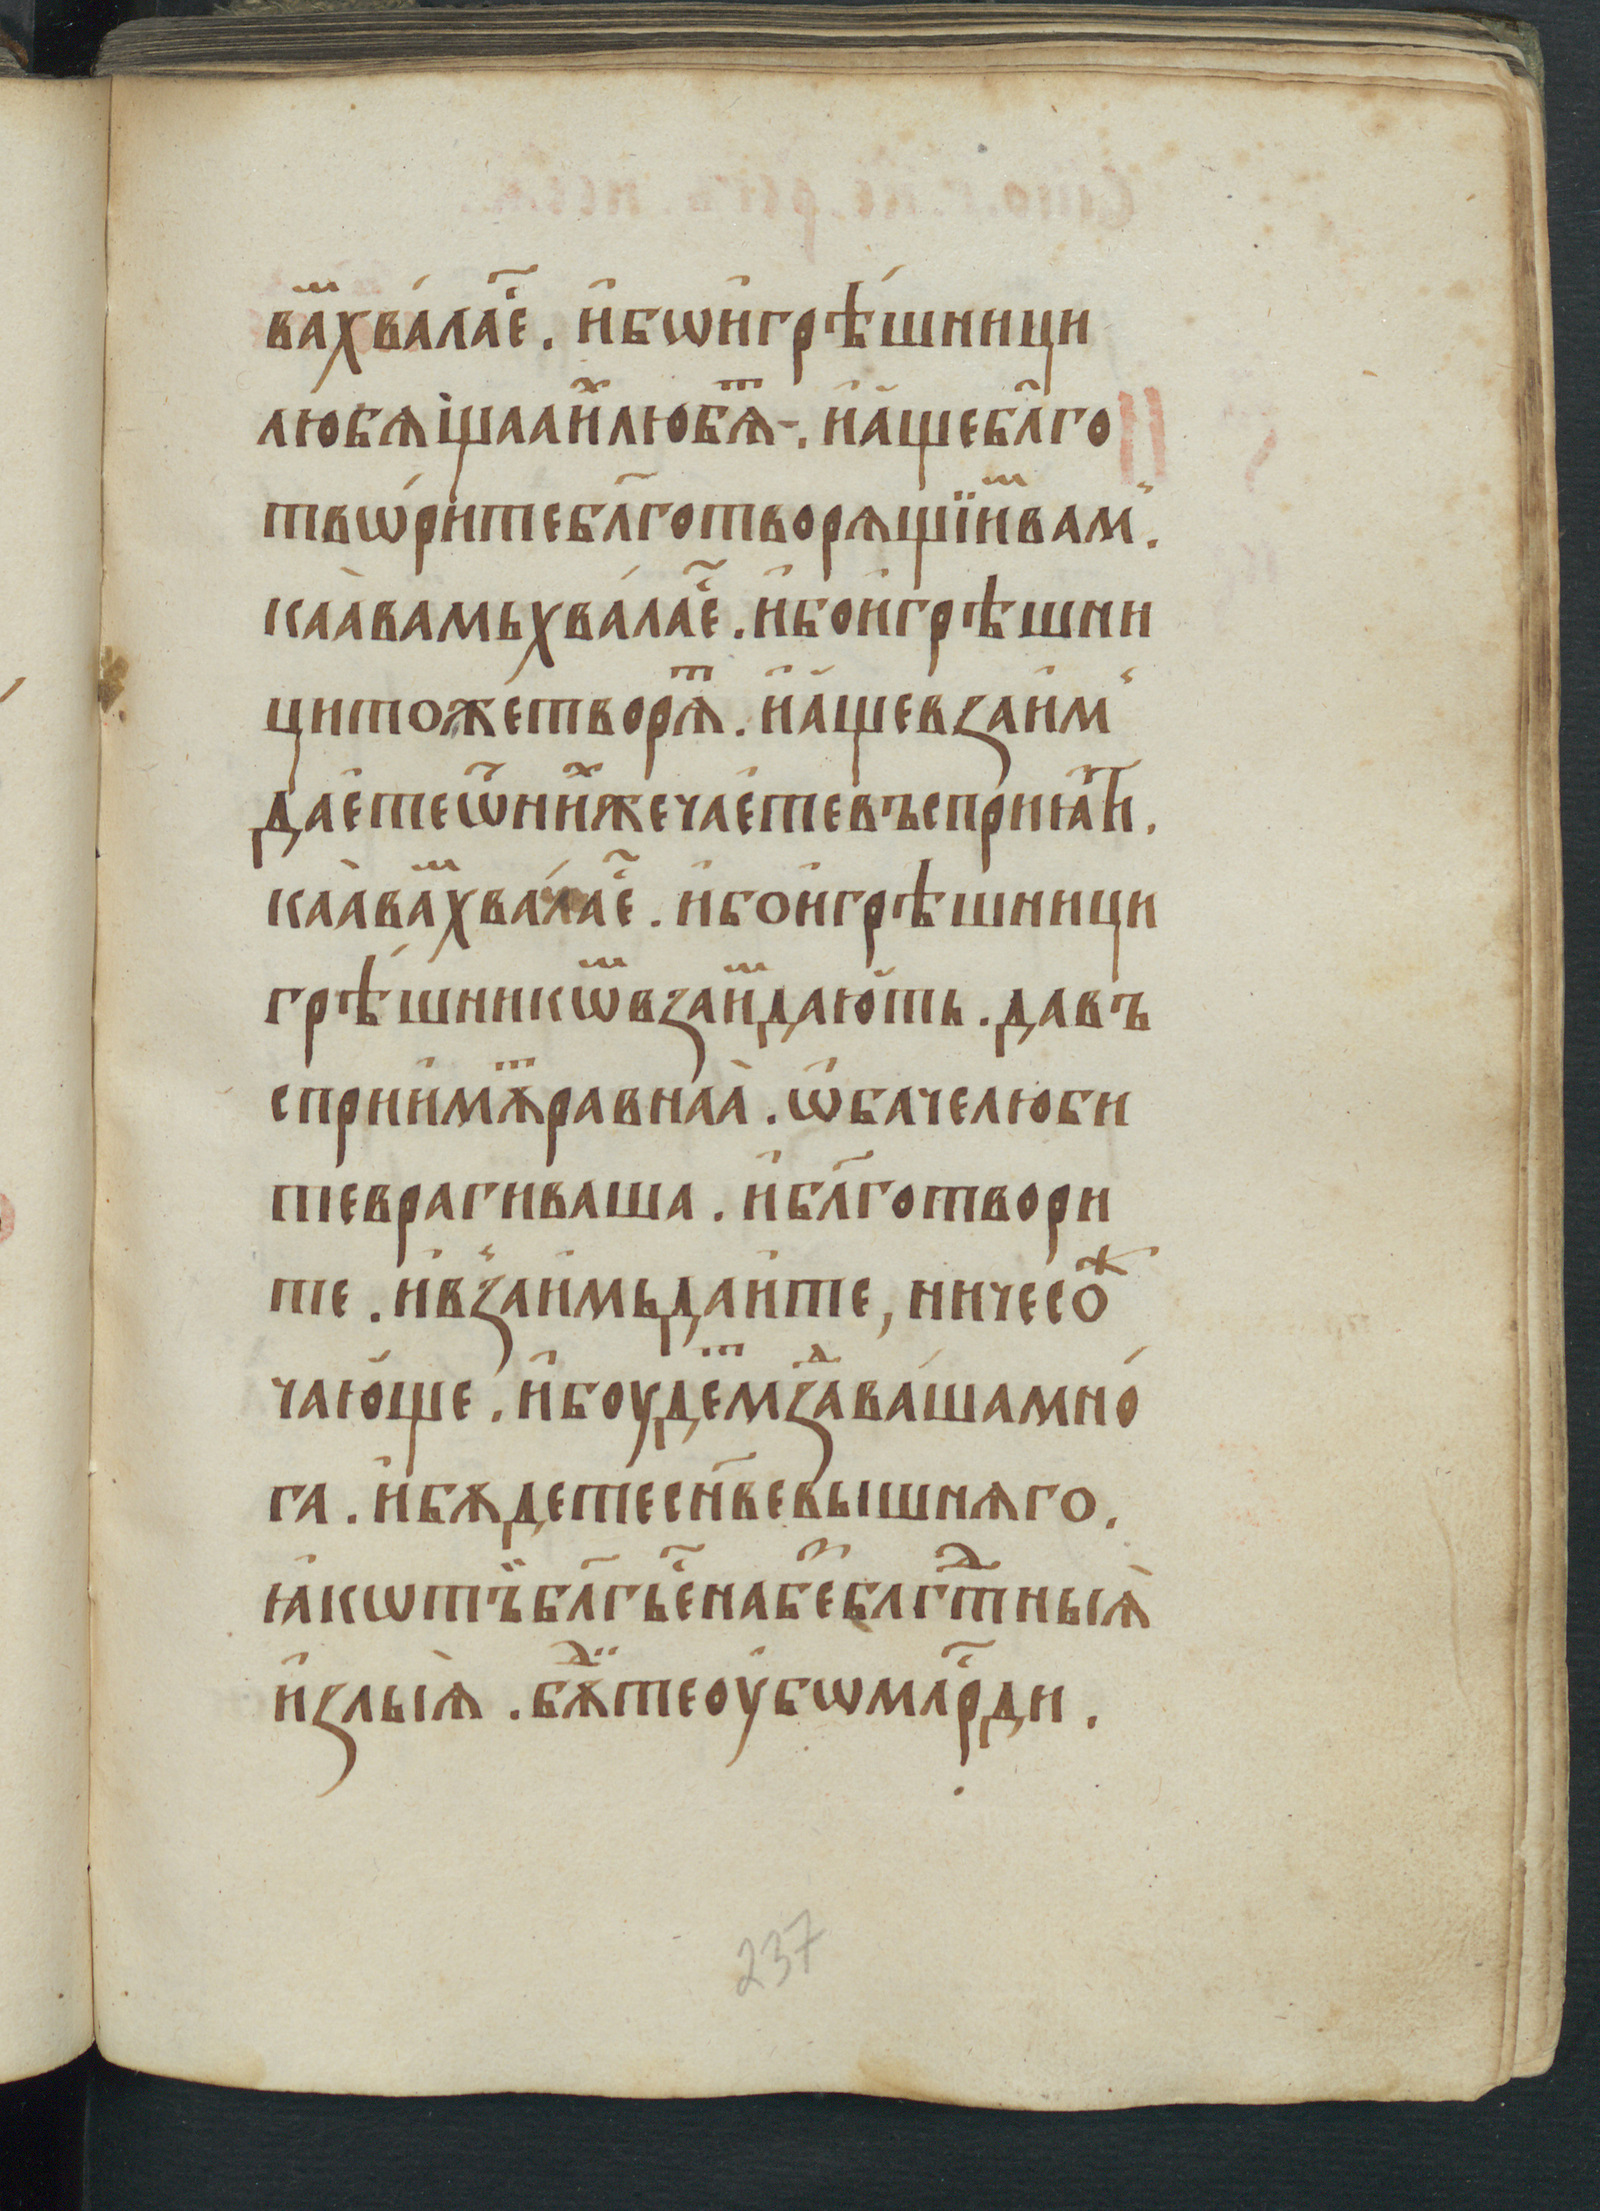 ваⷨ҇хва́лаⷭ҇е . и҆бѡи҆грѣ́шници
любѧ̀щаа и҆ⷯлюбѧⷮ . и҆а҆щебл҃го
твѡ́ритебл҃готворѧщїиⷨвам .
каѧ̀вамьхва́лаⷭ҇е . и҆бои҆грѣшни
цитожетворѧⷮ . и҆а҆щевзаи҆м
дае҆теѿниⷯжечае҆тевъсприꙗ҆ⷮи .
каѧ̀ваⷨхва́лаⷭ҇е . и҆бои҆грѣшници
грѣ́шникѡⷨвзаиⷨдаю҆ть . давъ
сприи҆мѧⷮравнаѧ̀ . ѡ҆бачелюби
теврагиваша . и҆бл҃готвори
те . и҆взаи҆мьдаи҆те , ничесоⷤ
чаю҆ще . и҆боудеⷮмздⷣава́шамно́
га . и҆бѫдетесн҃вевышнѧго .
ꙗ҆кѡтъ̏бл҃гьⷭ҇енабе҃блгⷣтныѧ̀
и҆злыѧ̀ . бѫⷣтеоу҆бѡмлⷭ҇рди .
237